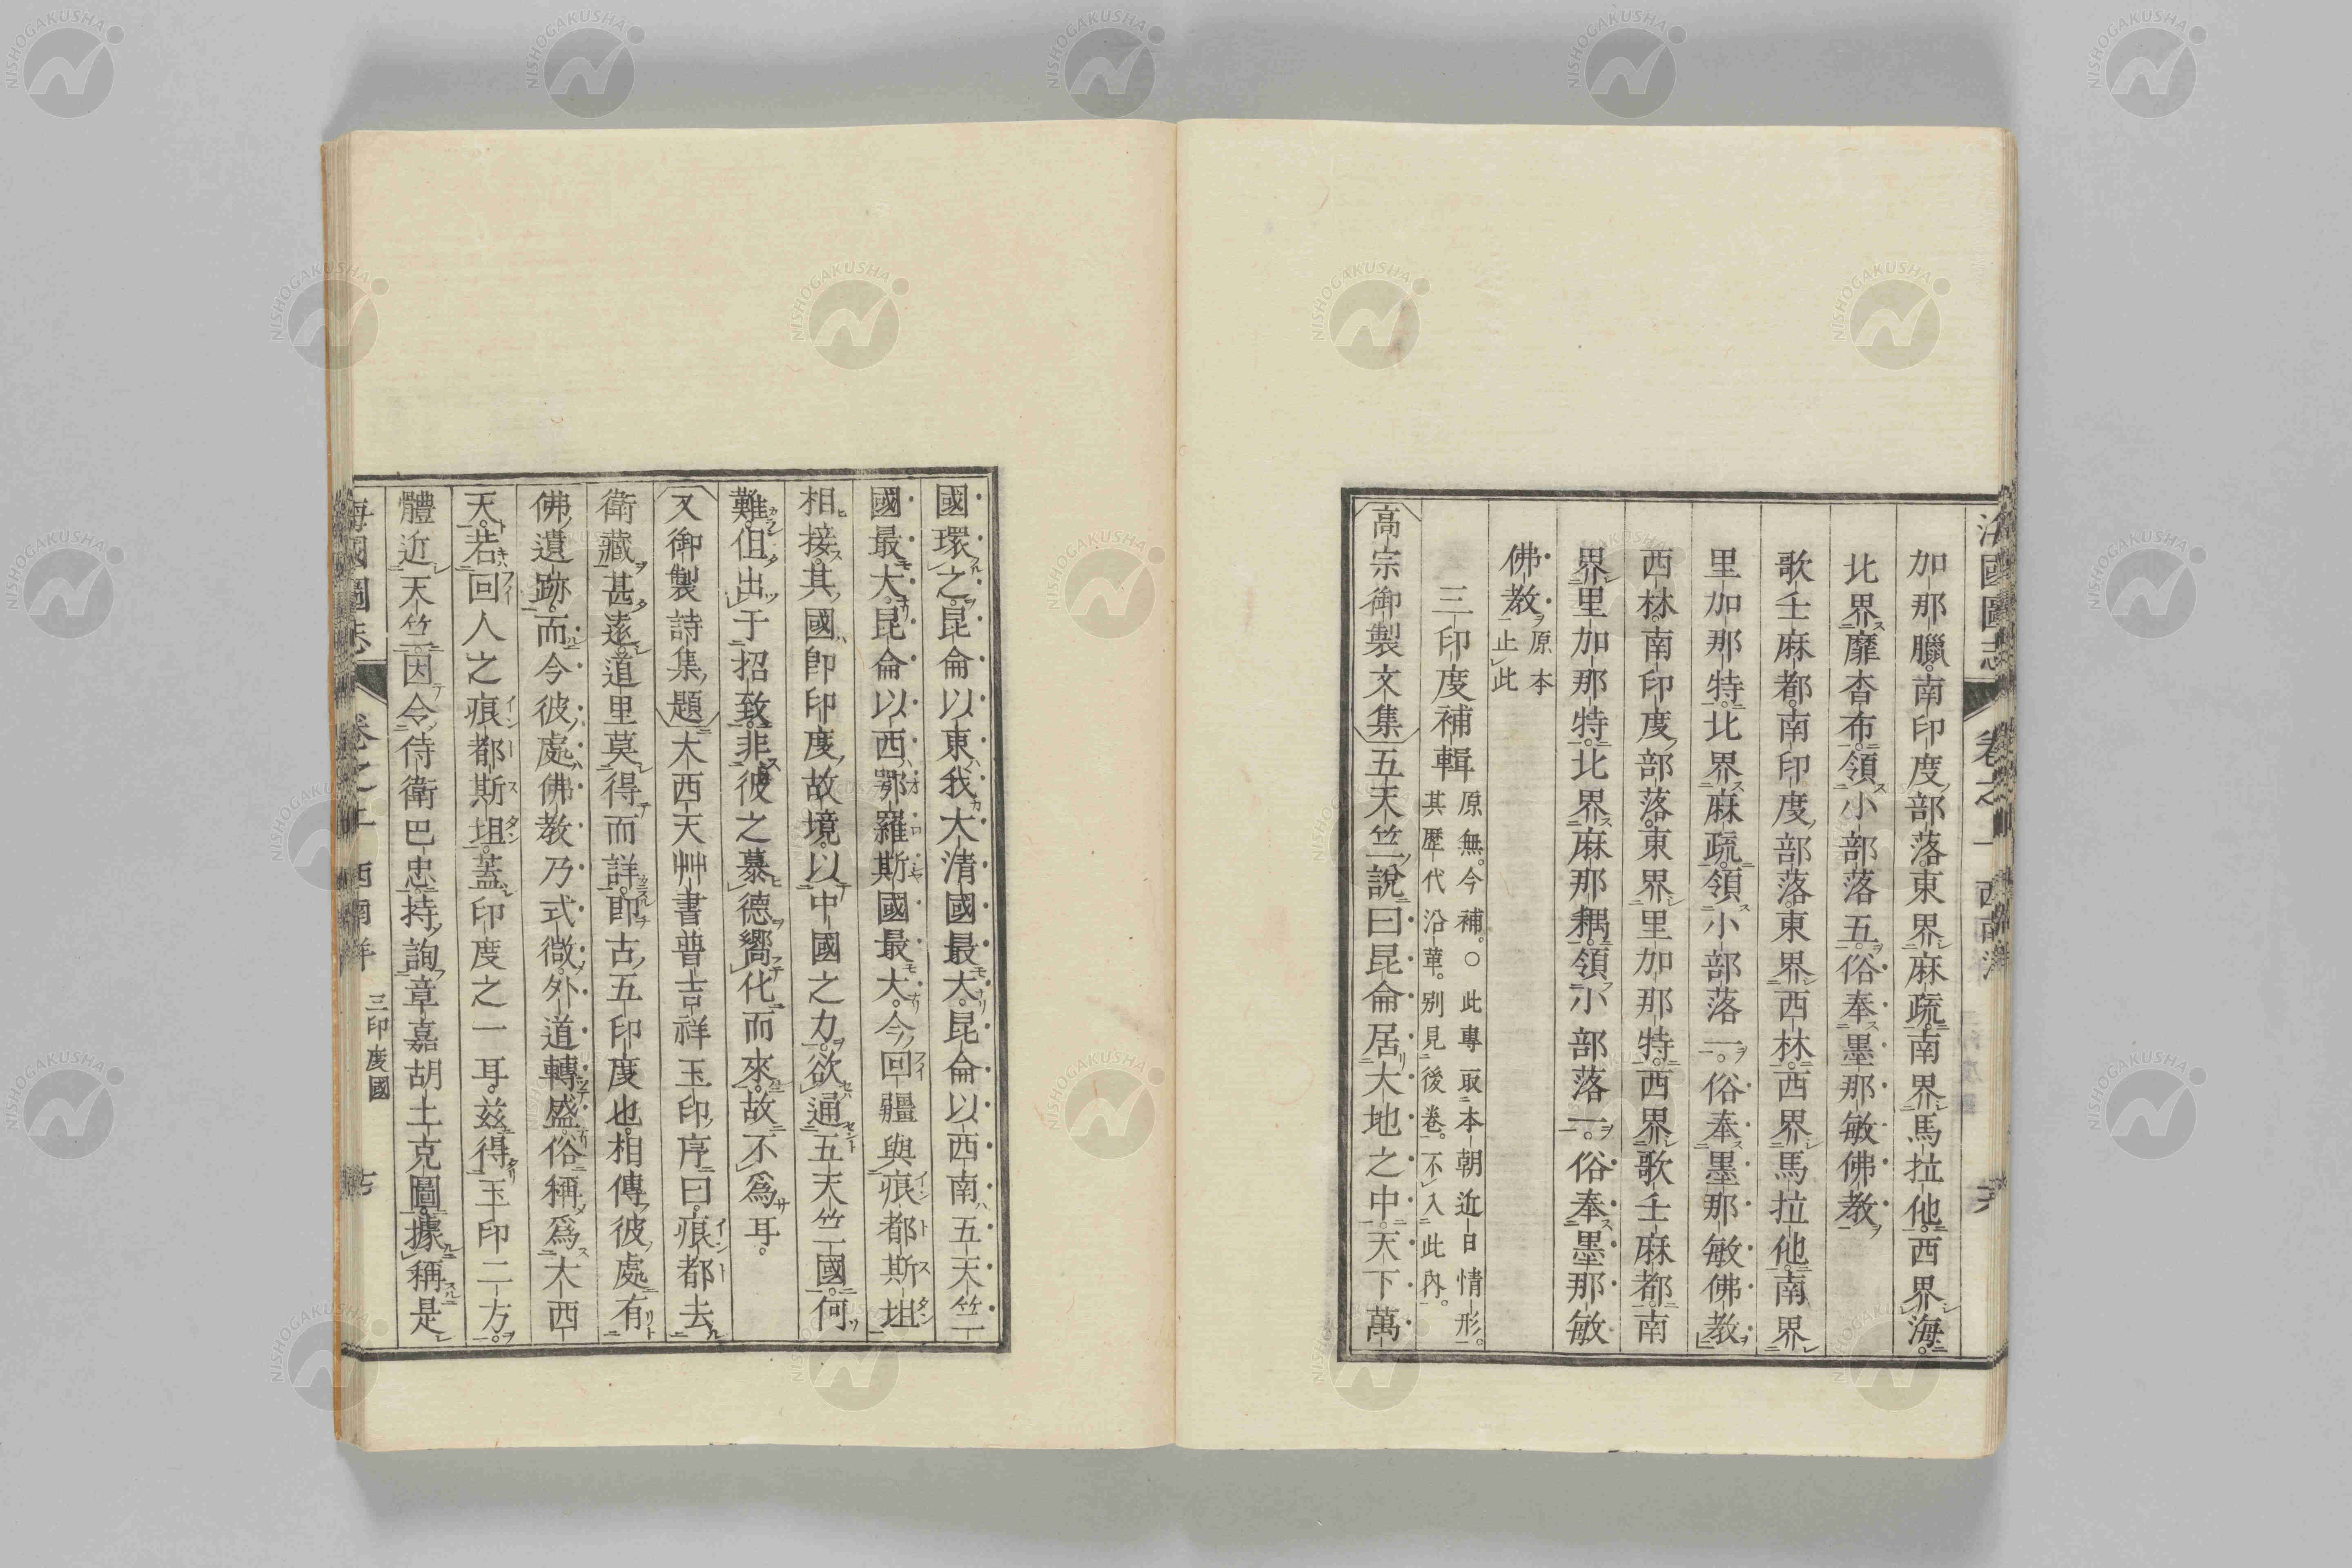 加那臘。南印度部落。東界麻疏。南界馬拉他。西界海。
北界靡杳布。領小部落五。俗奉墨那敏佛教
歌壬麻都。南印度部落。東界西林。西界馬拉他。南界
里加那特。北界麻疏。領小部落一。俗奉墨那敏佛教
西林。南印度部落。東界里加那特。西界歌壬麻都。南
界里加那特。北界麻那耦。領小部落一。俗奉墨那敏
佛教原本止此
三印度補輯原無。今補。○此專取本朝近日情形。其歷代沿革。別見後卷。不入此內。
高宗御製文集五天竺說曰昆侖居大地之中。天下萬
國環之。昆侖以東我大清國最大。昆侖以西南五天竺
國最大。昆侖以西鄂羅斯國最大。今回疆與痕都斯坦
相接。其國卽印度故境。以中國之力。欲通五天竺國。何
難。但出于招致。非彼之慕德嚮化而來。故不爲耳。
又御製詩集題大西天艸書普吉祥玉印序曰。痕都去
衛藏甚遠。道里莫得而詳。卽古五印度也。相傳彼處有
佛遺跡。而今彼處佛教乃式微。外道轉盛。俗稱爲大西
天。若回人之痕都斯坦。蓋印度之一耳。茲得玉印二方。
體近天竺。因令侍衛巴忠。持詢章嘉胡土克圖。據稱是
海國圖志 卷之 西南洋 三印度國 七
海國圖志 卷之 西南洋 六
NISHOGAKUSHA